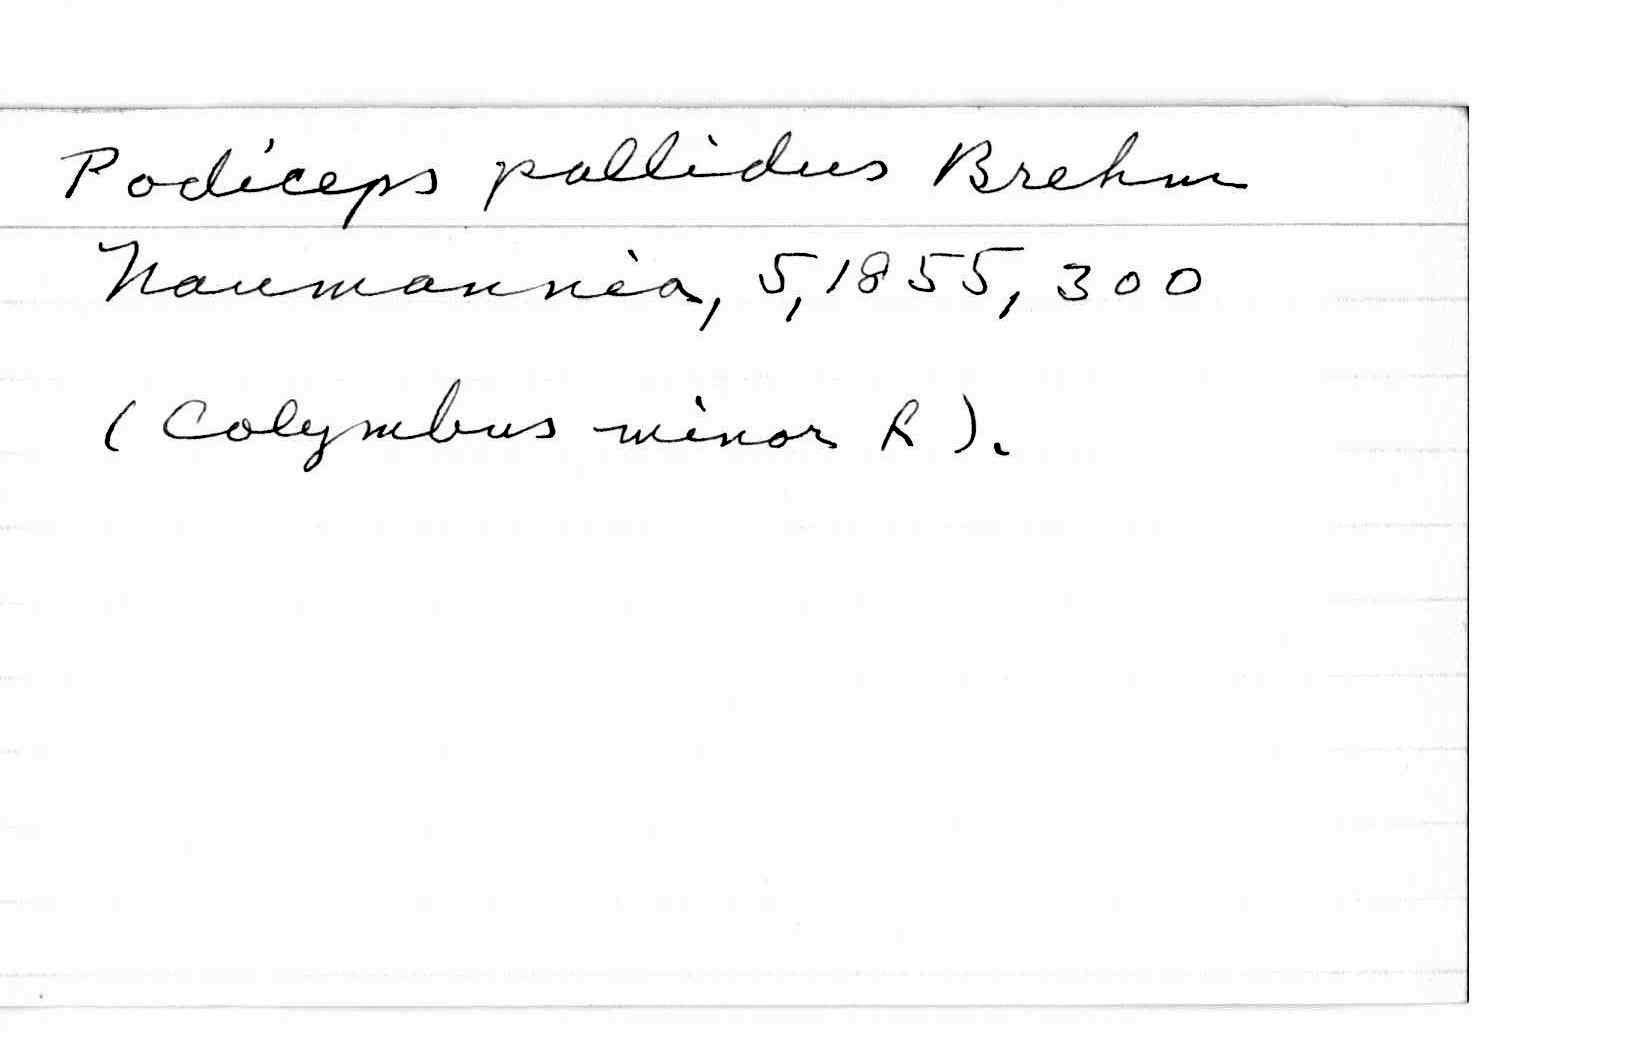 Podiceps pallidus Brehm
Naumannia, 5, 1855, 300
(Colymbus minor R).